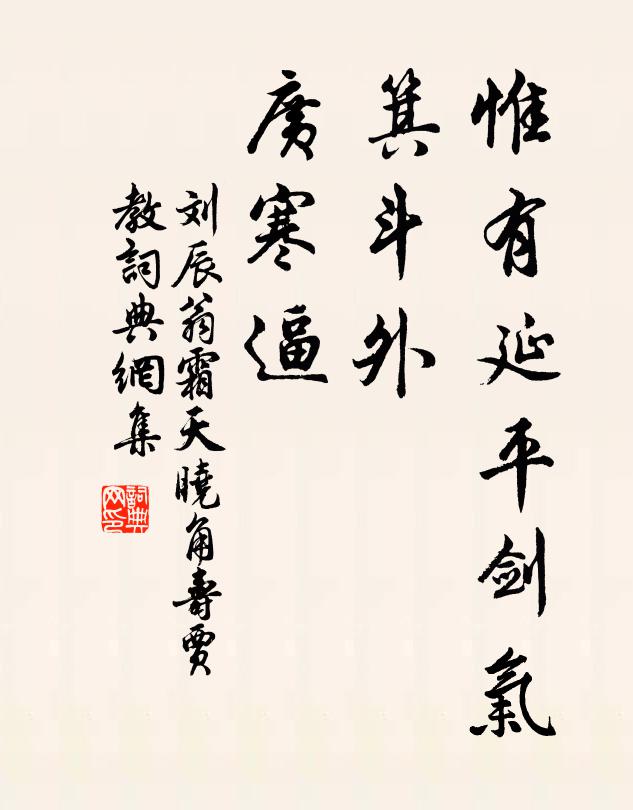 惟有延平剑氣
箕斗外
廣寒逼
刘辰翁霜天曉角壽賈
教詞典網集
詞典
网印